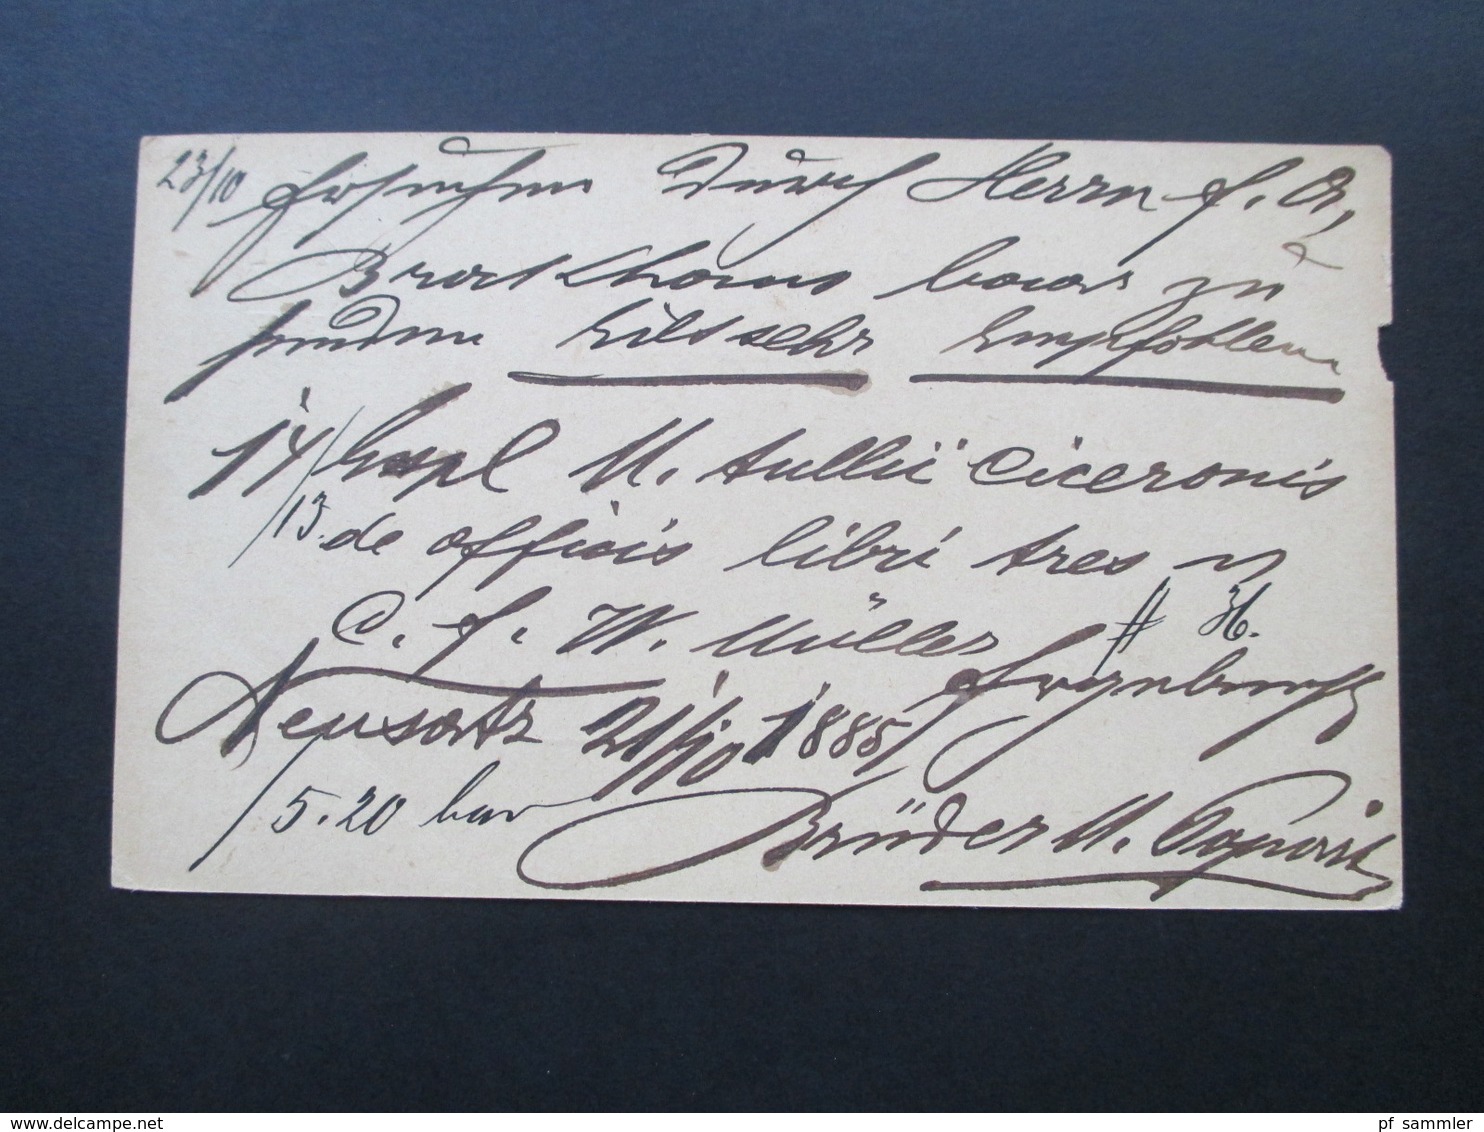 23/10 Ersuchen durch Herrn F. A.
Brockhaus baar zu
senden Eilt sehr Empfohlen
14/13 Expl M. Tullii Ciceronis
de officiis libri tres v
C. F. W. Müller # 36.
Ergebenst
Neusatz 21/10 1885
5.20 bar
Brüder M. Popović
pf sammler